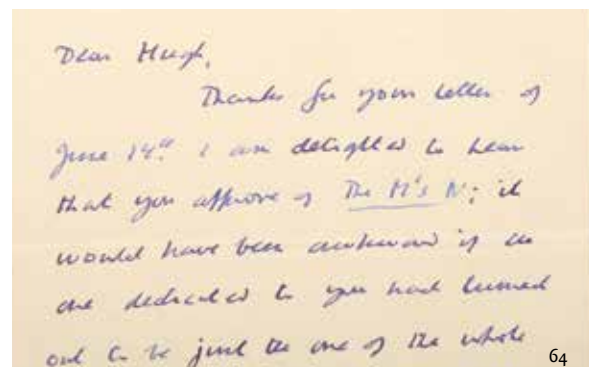 Dear Hugh,
Thanks for your letter of
June 14th. I am delighted to hear
that you approve of The M's N; it
would have been awkward if the
one dedicated to you had turned
out to be just the one of the whole
64